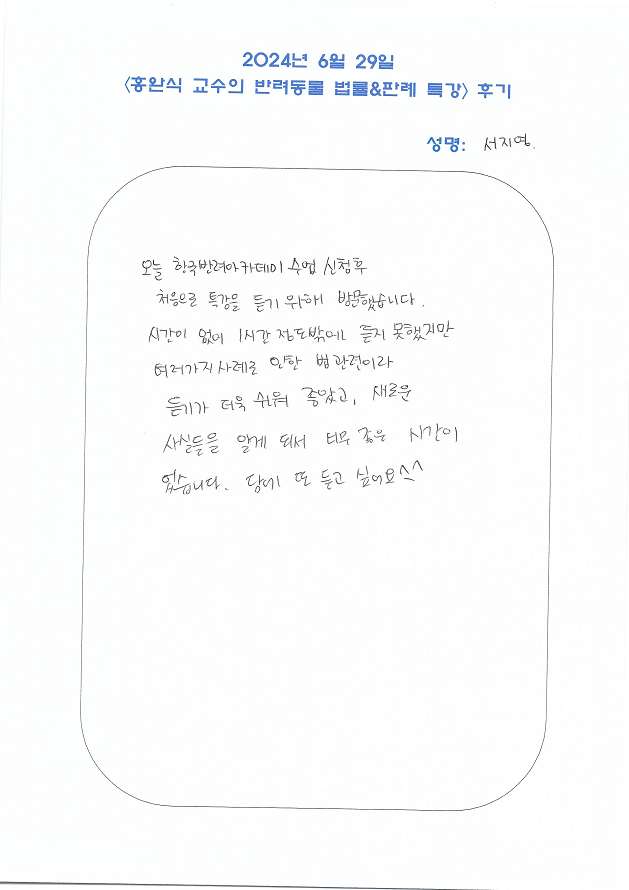 2024년 6월 29일
<홍완식 교수의 반려동물 법률&판례 특강> 후기
성명: 서지영.
오늘 한국반려아카데미 수업 신청후
처음으로 특강을 듣기 위해 방문했습니다.
시간이 없어 1시간 정도밖에 듣지 못했지만
여러가지 사례로 인한 법 관련이라
듣기가 더욱 쉬워 좋았고, 새로운
사실들을 알게 되서 너무 좋은 시간이
었습니다. 담에 또 듣고 싶어요^^